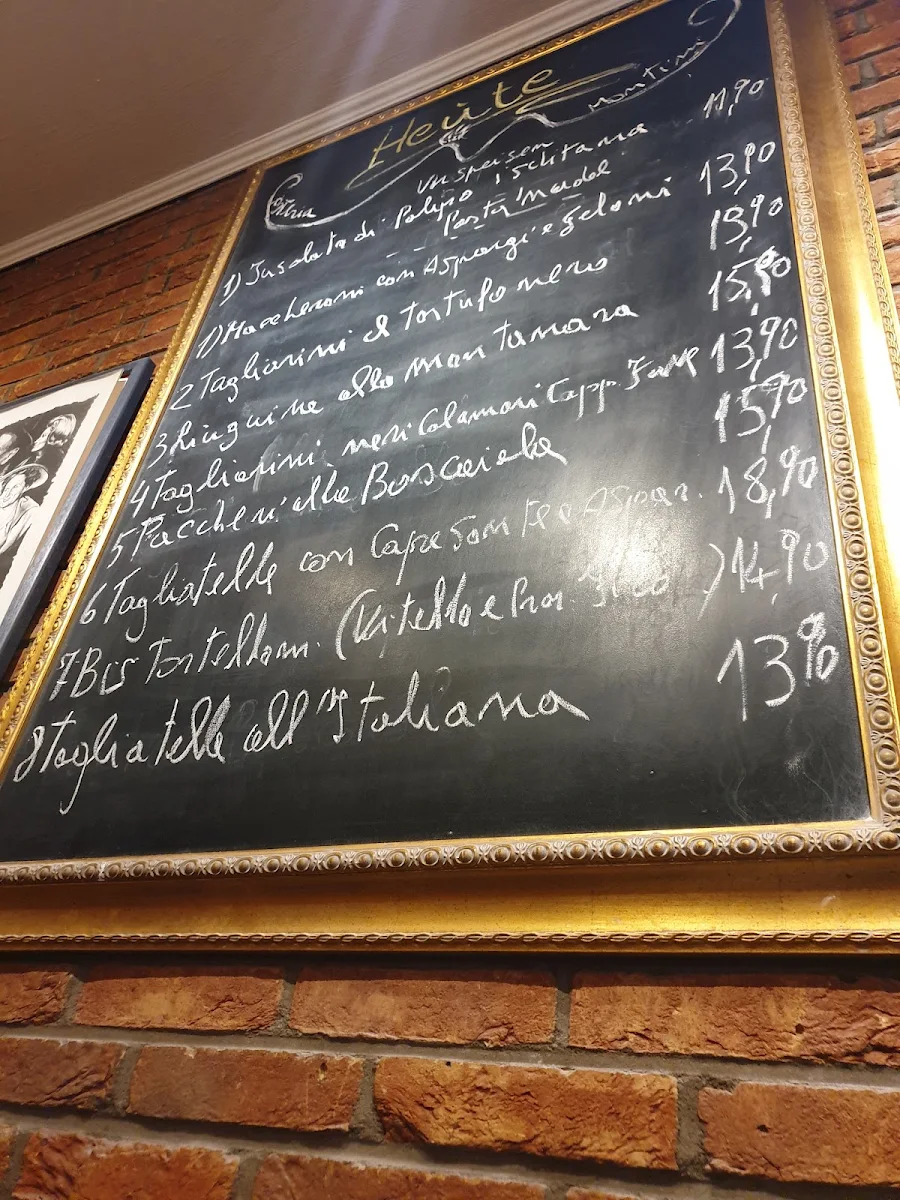 Heute
montini
Vorspeisen
1) Insalata di Polipo ischitana 11,90
Pasta/Nudel
1) Maccheroni con Asparagi e 13,90
2 Tagliarini al tartufo nero 13,90
3 Linguine alla montanara 15,90
4 Tagliarini neri Calamari Capp. 13,90
5 Paccheri alla Boscaiola 15,90
6 Tagliatelle con Capesante e Aspar. 18,90
7 Bis Tortelloni (Vitello e ) 14,90
8 Tagliatelle all'Italiana 13,90